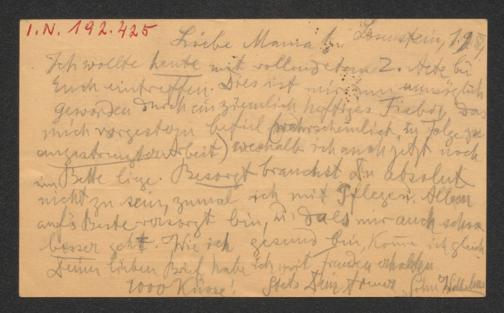 I.N. 192.425
Liebe Mama! Lounstein, 1.9.
Ich wollte heute mit vollendetem 2. Acte bei
Euch eintreffen. Dies ist mir nun unmöglich
geworden durch ein ziemlich heftiges Fieber, das
mich vorgestern befiel (wahrscheinlich in Folge zu
angestrengter Arbeit) weshalb ich auch jetzt noch
im Bette liege. Besorgt brauchst Du absolut
nicht zu sein, zumal ich mit Pflege u. Allem
auf's Beste versorgt bin, u. dass mir auch schon
besser geht. Wie ich gesund bin, komme ich gleich.
Deinen lieben Brief habe ich mit Freuden erhalten
1000 Küsse! Stets Dein treuer Sohn